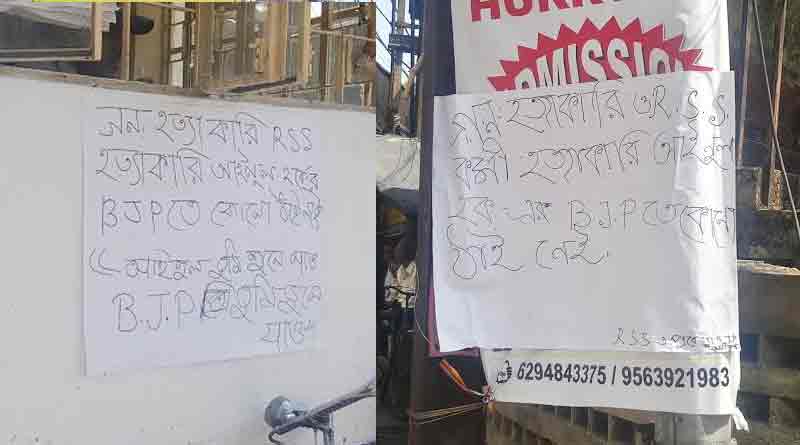 গন: হত্যা কারি RSS
হত্যাকারি আইনুল হকের
BJPতে কোনো ঠাই নাই
আইনুল তুমি শুনে নাও
B.J.P তুমি ভুলে
যাও
HURRY
ADMISSIO
গন: হত্যাকারি R.S.S.
কর্মী হত্যাকারি আইনুল
হক এর B.J.Pতে কোনো
ঠাই নেই.
RSS
6294843375 / 9563921983